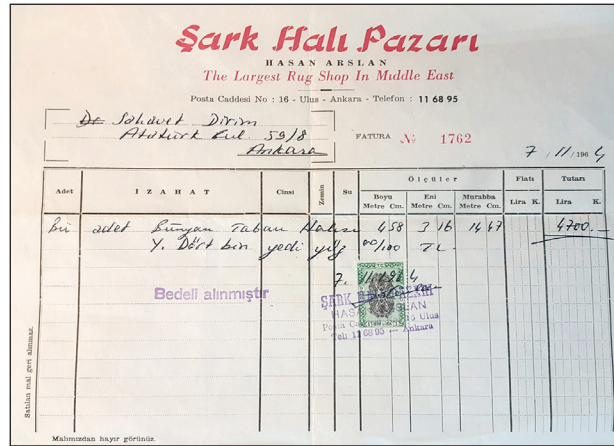 Şark Halı Pazarı
HASAN ARSLAN
The Largest Rug Shop In Mıddle East
Posta Caddesi No : 16 - Ulus - Ankara - Telefon : 11 68 95
Dr Sahavet Dirim
Atatürk Bul. 59/8
Ankara
FATURA No 1762
7 / 11 / 1964
Adet İZAHAT Cinsi Zemin Su Ölçüler Fiatı Tutarı
Boyu Eni Murabba
Metre Cm. Metre Cm. Metre Cm. Lira K. Lira K.
Bir adet Bünyan Taban Halısı 4 58 3 16 14 47 4700.-
Y. Dört bin yedi yüz 00/100 TL.
7. 11. 1964
Bedeli alınmıştır
ŞARK HALI
HASAN ARSLAN
Posta Ca 16 Ulus
Tel: 11 68 95 — Ankara
Satılan mal geri alınmaz.
Malımızdan hayır görünüz.